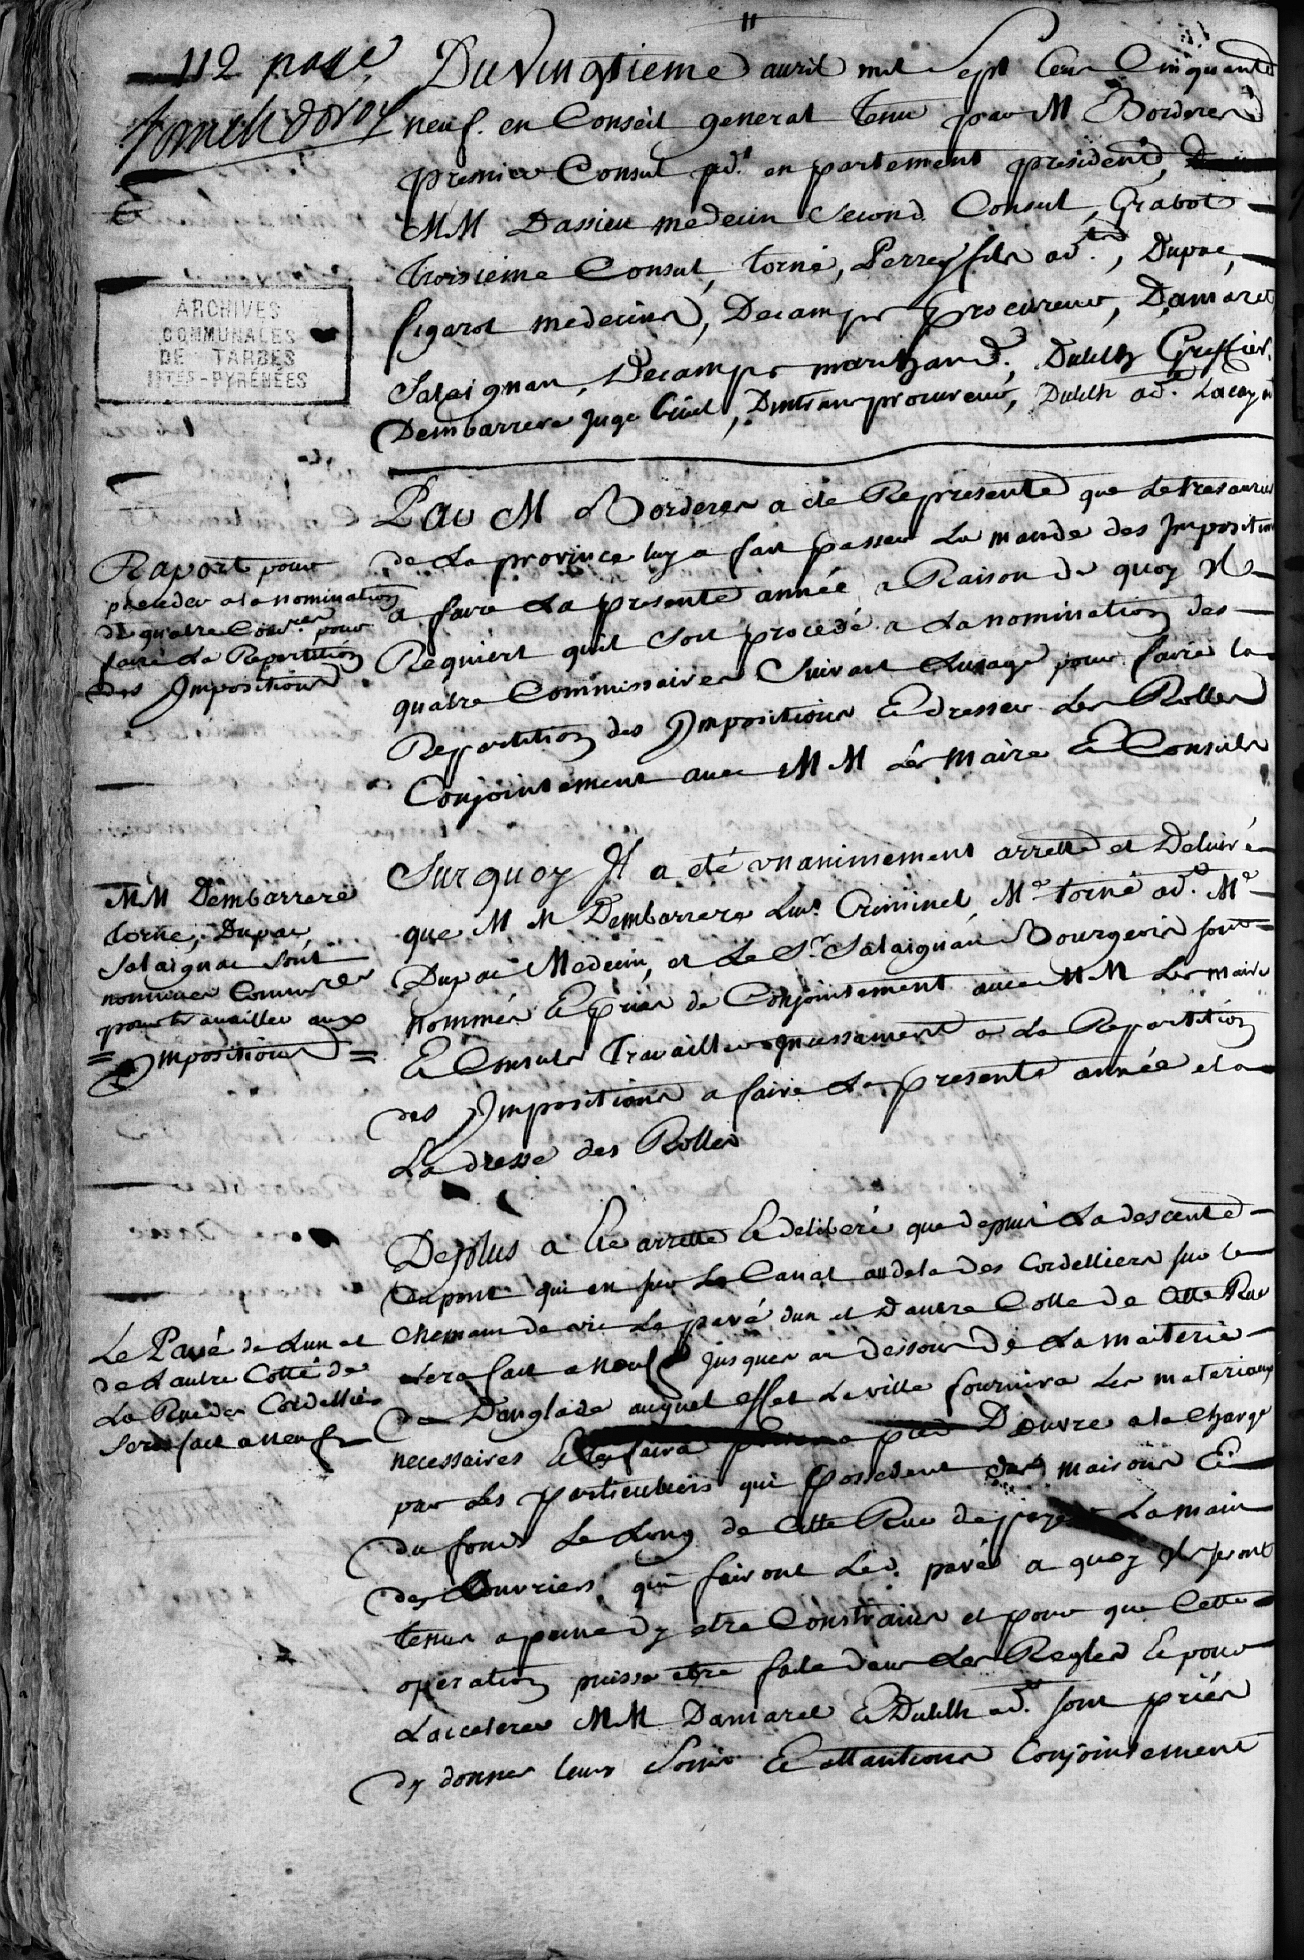 112 page
Du vingtieme avril mil sept Cens Cinquante
neuf. en Conseil general tenu par M Borderes
premier Consul adt. en partement president,
MM Dassieu medecin second Consul, Grabot
troisieme Consul, torné, Perrey fils adt., Dupac,
figarol medecins, Decamps procureur, Damaret
Salaignac, Decamps marchand, Dulilh Greffier,
Dembarrere juge Civil, Dintrans procureur, Dulilh adt.
ARCHIVES
COMMUNALES
DE TARBES
HTES-PYRÉNÉES
Par M Borderes a ete Represente que le tresaurier
de La province luy a fait passer La mande des Impositions
a faire La presente année a Raison de quoy Il
Requiert quil soit procedé a La nomination des
quatre Commissaires suivant Lusage pour faire la
Repartition des Impositions Et dresser Les Rolles
Conjointement avec MM Les Maire Et Consuls
Raport pour
proceder a la nomination
de quatre Comres. pour
faire La Repartition
des Impositions
Sur quoy Il a eté unanimement arretté et Deliveré
que MM Dembarrere Lieut. Criminel, Me torné adt. Me
Dupac Medecin, et Le Sr. Salaignac Bourgeois sont
nommés Et priés de Conjointement avec MM Les maire
Et Consuls Travailler incessament a La Repartition
des Impositions a faire La presente année et a
La dresse des Rolles
MM Dembarrere
torné, Dupac,
Salaignac sont
nommés Commres
pour travailler aux
= Impositions =
De plus a Ete arretté Et deliberé que depuis La descente
du pont qui en sur Le Canal au dela des Cordelliers sur le
Chemain de vic Le pavé dun et Dautre Cotte de Cette Rue
sera fait a neuf jusques au dessous de La maiterie
de Danglade auquel effet La ville fournira Les materiaux
necessaires Et faira Dœuvre a la Charge
par Les particuliers qui possedent des maisons Et
du fons Le Long de Cette Rue de payer La main
des Louvriers qui fairont Led. pavé a quoy Ils seront
tenus a peine dy etre Constrains et pour que Cette
operation puisse etre faite dans Les Regles Et pour
Laccelerer MM Damaret Et Dulilh adt. sont priés
dy donner leurs soins Et attantions Conjointement
Le Pavé de Lun et
de Lautre Cotté de
La Rue des Cordelliers
sera fait a neuf